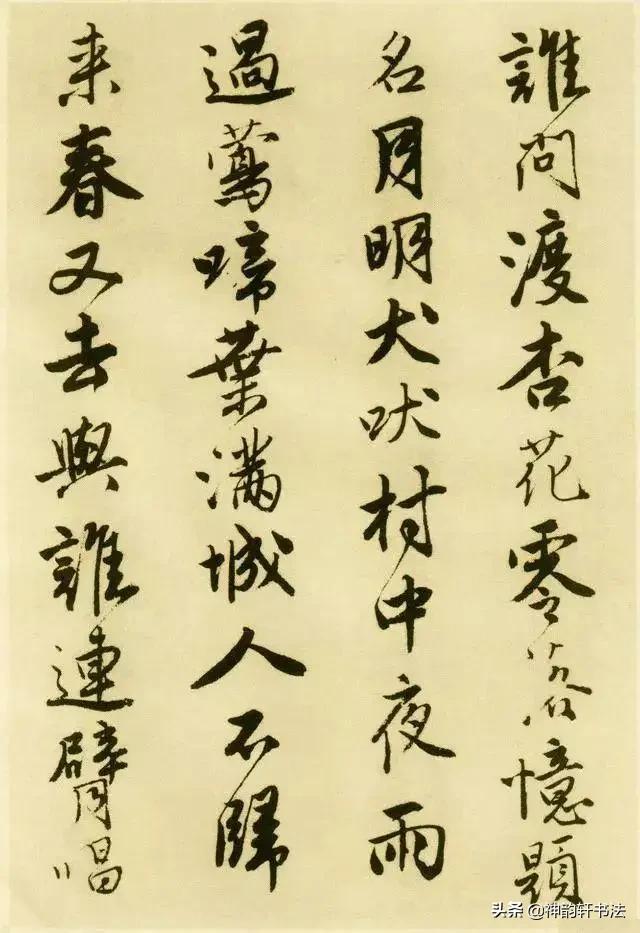 誰問渡杏花零落憶題
名月明犬吠村中夜雨
過鶯啼葉滿城人不歸
来春又去與誰連臂唱
头条 @神韵轩书法